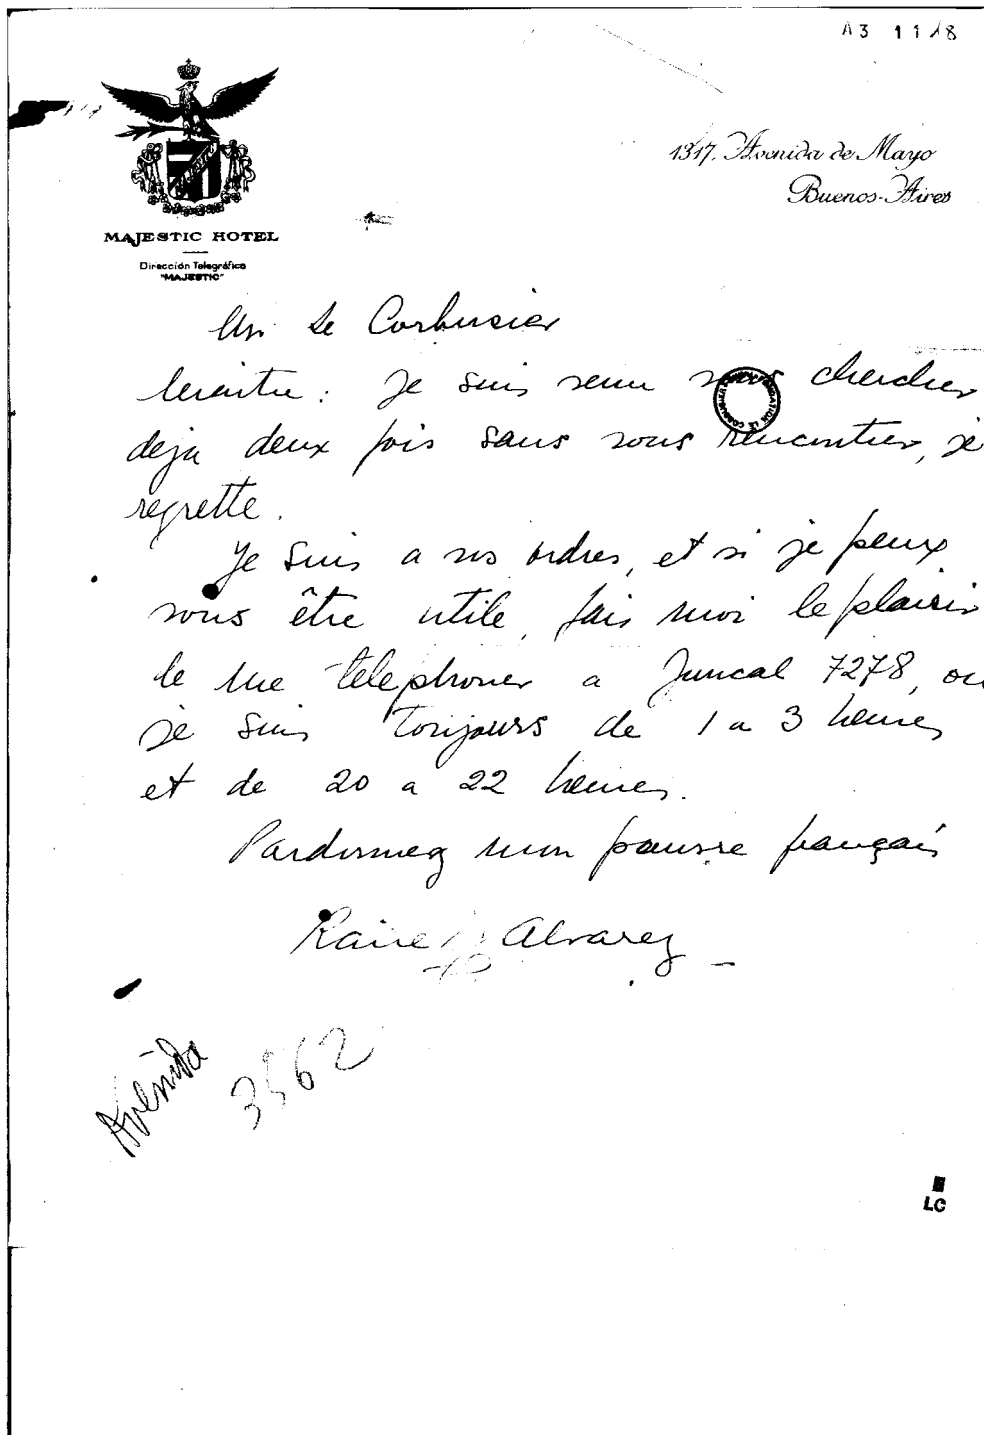 A3 11 18
1317. Avenida de Mayo
Buenos-Aires
MAJESTIC HOTEL
Dirección Telegráfica
"MAJESTIC"
Mr Le Corbusier
Maitre: Je suis venu vous chercher
deja deux fois sans vous rencontrer, je
regrette.
Je suis a vos ordres, et si je peux
vous être utile, fais moi le plaisir
de me telephoner a Juncal 7278, ou
je suis toujours de 1 a 3 heures
et de 20 a 22 heures.
Pardonnez mon pauvre français
Alvarez
Avenida
3562
LC